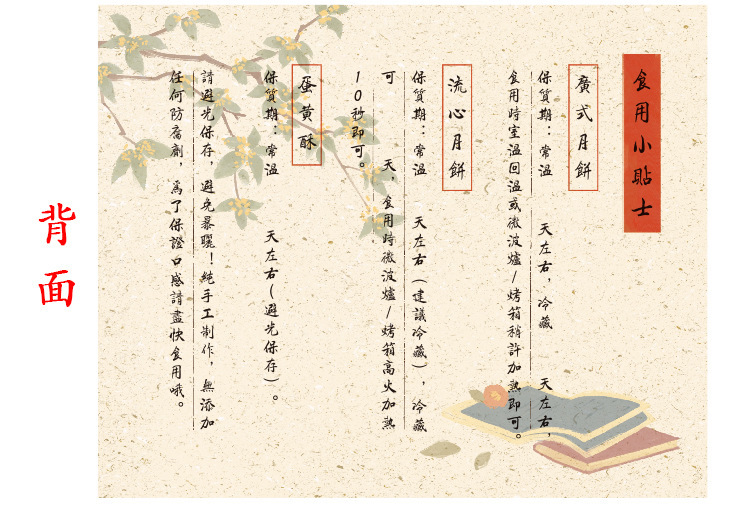 背面
食用小貼士
廣式月餅
保質期：常溫　　天左右，冷藏　　天左右，
食用時室溫回溫或微波爐/烤箱稍許加熱即可。
流心月餅
保質期：常溫　　天左右(建議冷藏)，冷藏
可　　天，食用時微波爐/烤箱高火加熱
10秒即可。
蛋黃酥
保質期：常溫　　天左右(避光保存)。
請避光保存，避免暴曬！純手工制作，無添加
任何防腐劑，為了保證口感請盡快食用哦。